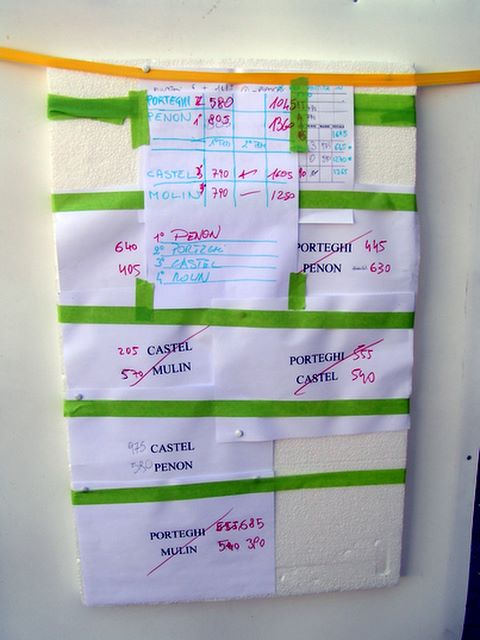 PORTEGHI 2° 580 1045
PENON 1° 805 1360
1° TEM 2° TEM
CASTEL 3° 790 1605
MOLIN 790 — 1250
1° PENON
2° PORTEGHI
3° CASTEL
4° MOLIN
640
405
PORTEGHI 445
PENON 630
205 CASTEL
570 MULIN
PORTEGHI 555
CASTEL 540
975 CASTEL
580 PENON
PORTEGHI 685
MULIN 540 390